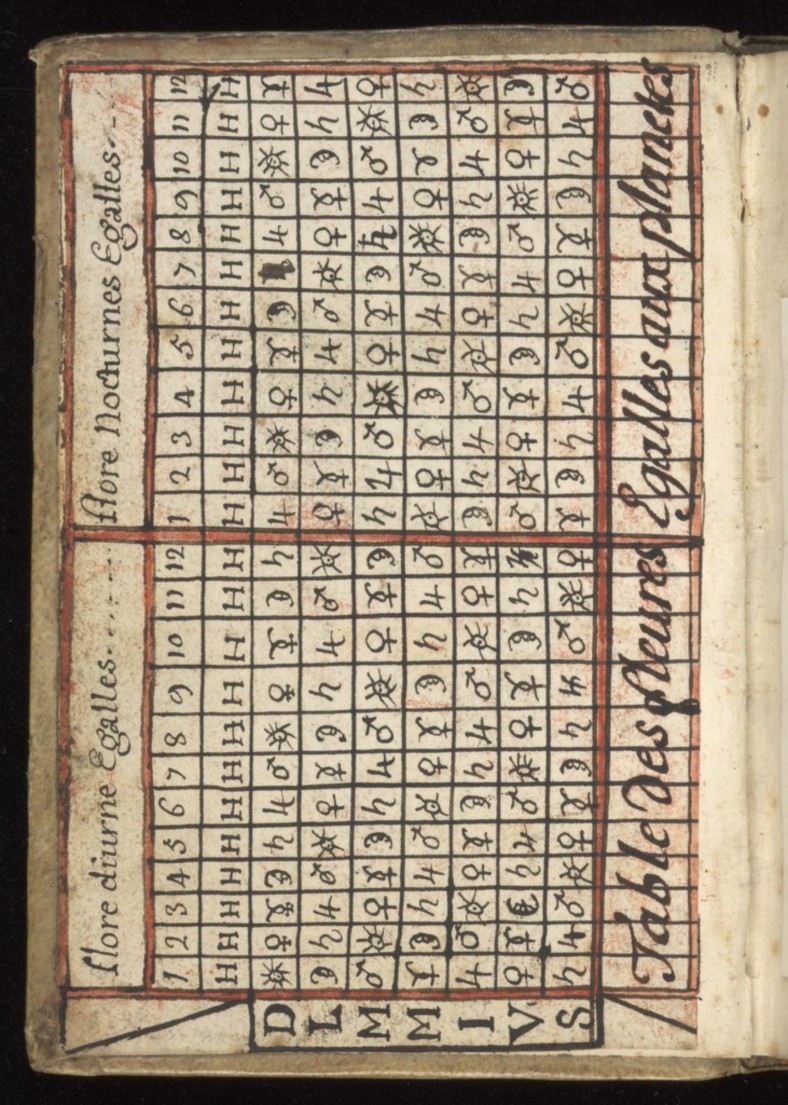 Hore diurne Egalles..... Hore Nocturnes Egalles....
1 2 3 4 5 6 7 8 9 10 11 12 1 2 3 4 5 6 7 8 9 10 11 12
H H H H H H H H H H H H H H H H H H H H H H H H
D ☉ ♀ ☿ ☾ ♄ ♃ ♂ ☉ ♀ ☿ ☾ ♄ ♃ ♂ ☉ ♀ ☿ ☾ ♃ ♂ ☉ ♀ ☿
L ☾ ♄ ♃ ♂ ☉ ♀ ☿ ☾ ♄ ♃ ♂ ☉ ♀ ☿ ☾ ♄ ♃ ♂ ☉ ♀ ☿ ☾ ♄ ♃
M ♂ ☉ ♀ ☿ ☾ ♄ ♃ ♂ ☉ ♀ ☿ ☾ ♄ ♃ ♂ ☉ ♀ ☿ ☾ ♄ ♃ ♂ ☉ ♀
M ☿ ☾ ♄ ♃ ♂ ☉ ♀ ☿ ☾ ♄ ♃ ♂ ☉ ♀ ☿ ☾ ♄ ♃ ♂ ☉ ♀ ☿ ☾ ♄
I ♃ ♂ ☉ ♀ ☿ ☾ ♄ ♃ ♂ ☉ ♀ ☿ ☾ ♄ ♃ ♂ ☉ ♀ ☿ ☾ ♄ ♃ ♂ ☉
V ♀ ☿ ☾ ♄ ♃ ♂ ☉ ♀ ☿ ☾ ♄ ♃ ♂ ☉ ♀ ☿ ☾ ♄ ♃ ♂ ☉ ♀ ☿ ☾
S ♄ ♃ ♂ ☉ ♀ ☿ ☾ ♄ ♃ ♂ ☉ ♀ ☿ ☾ ♄ ♃ ♂ ☉ ♀ ☿ ☾ ♄ ♃ ♂
Table Des Heures Egalles aux planetes